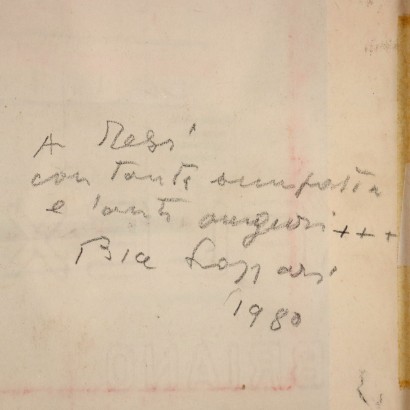 A Resi
con tanta simpatia
e tanti auguri +++
Bice Lazzari
1980